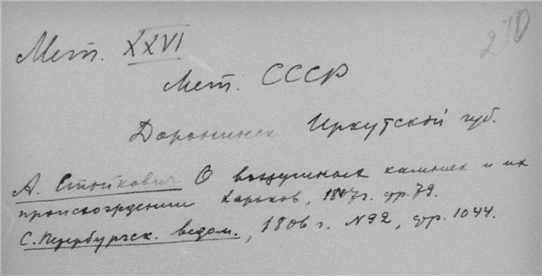 270
Мет. XXVI
Мет. СССР
Доронинск Иркутской губ.
А. Стойкович О воздушных камнях и их
происхождении Харьков, 1807г. стр. 79.
С. Петербургск. ведом., 1806 г. N 92, стр. 1044.